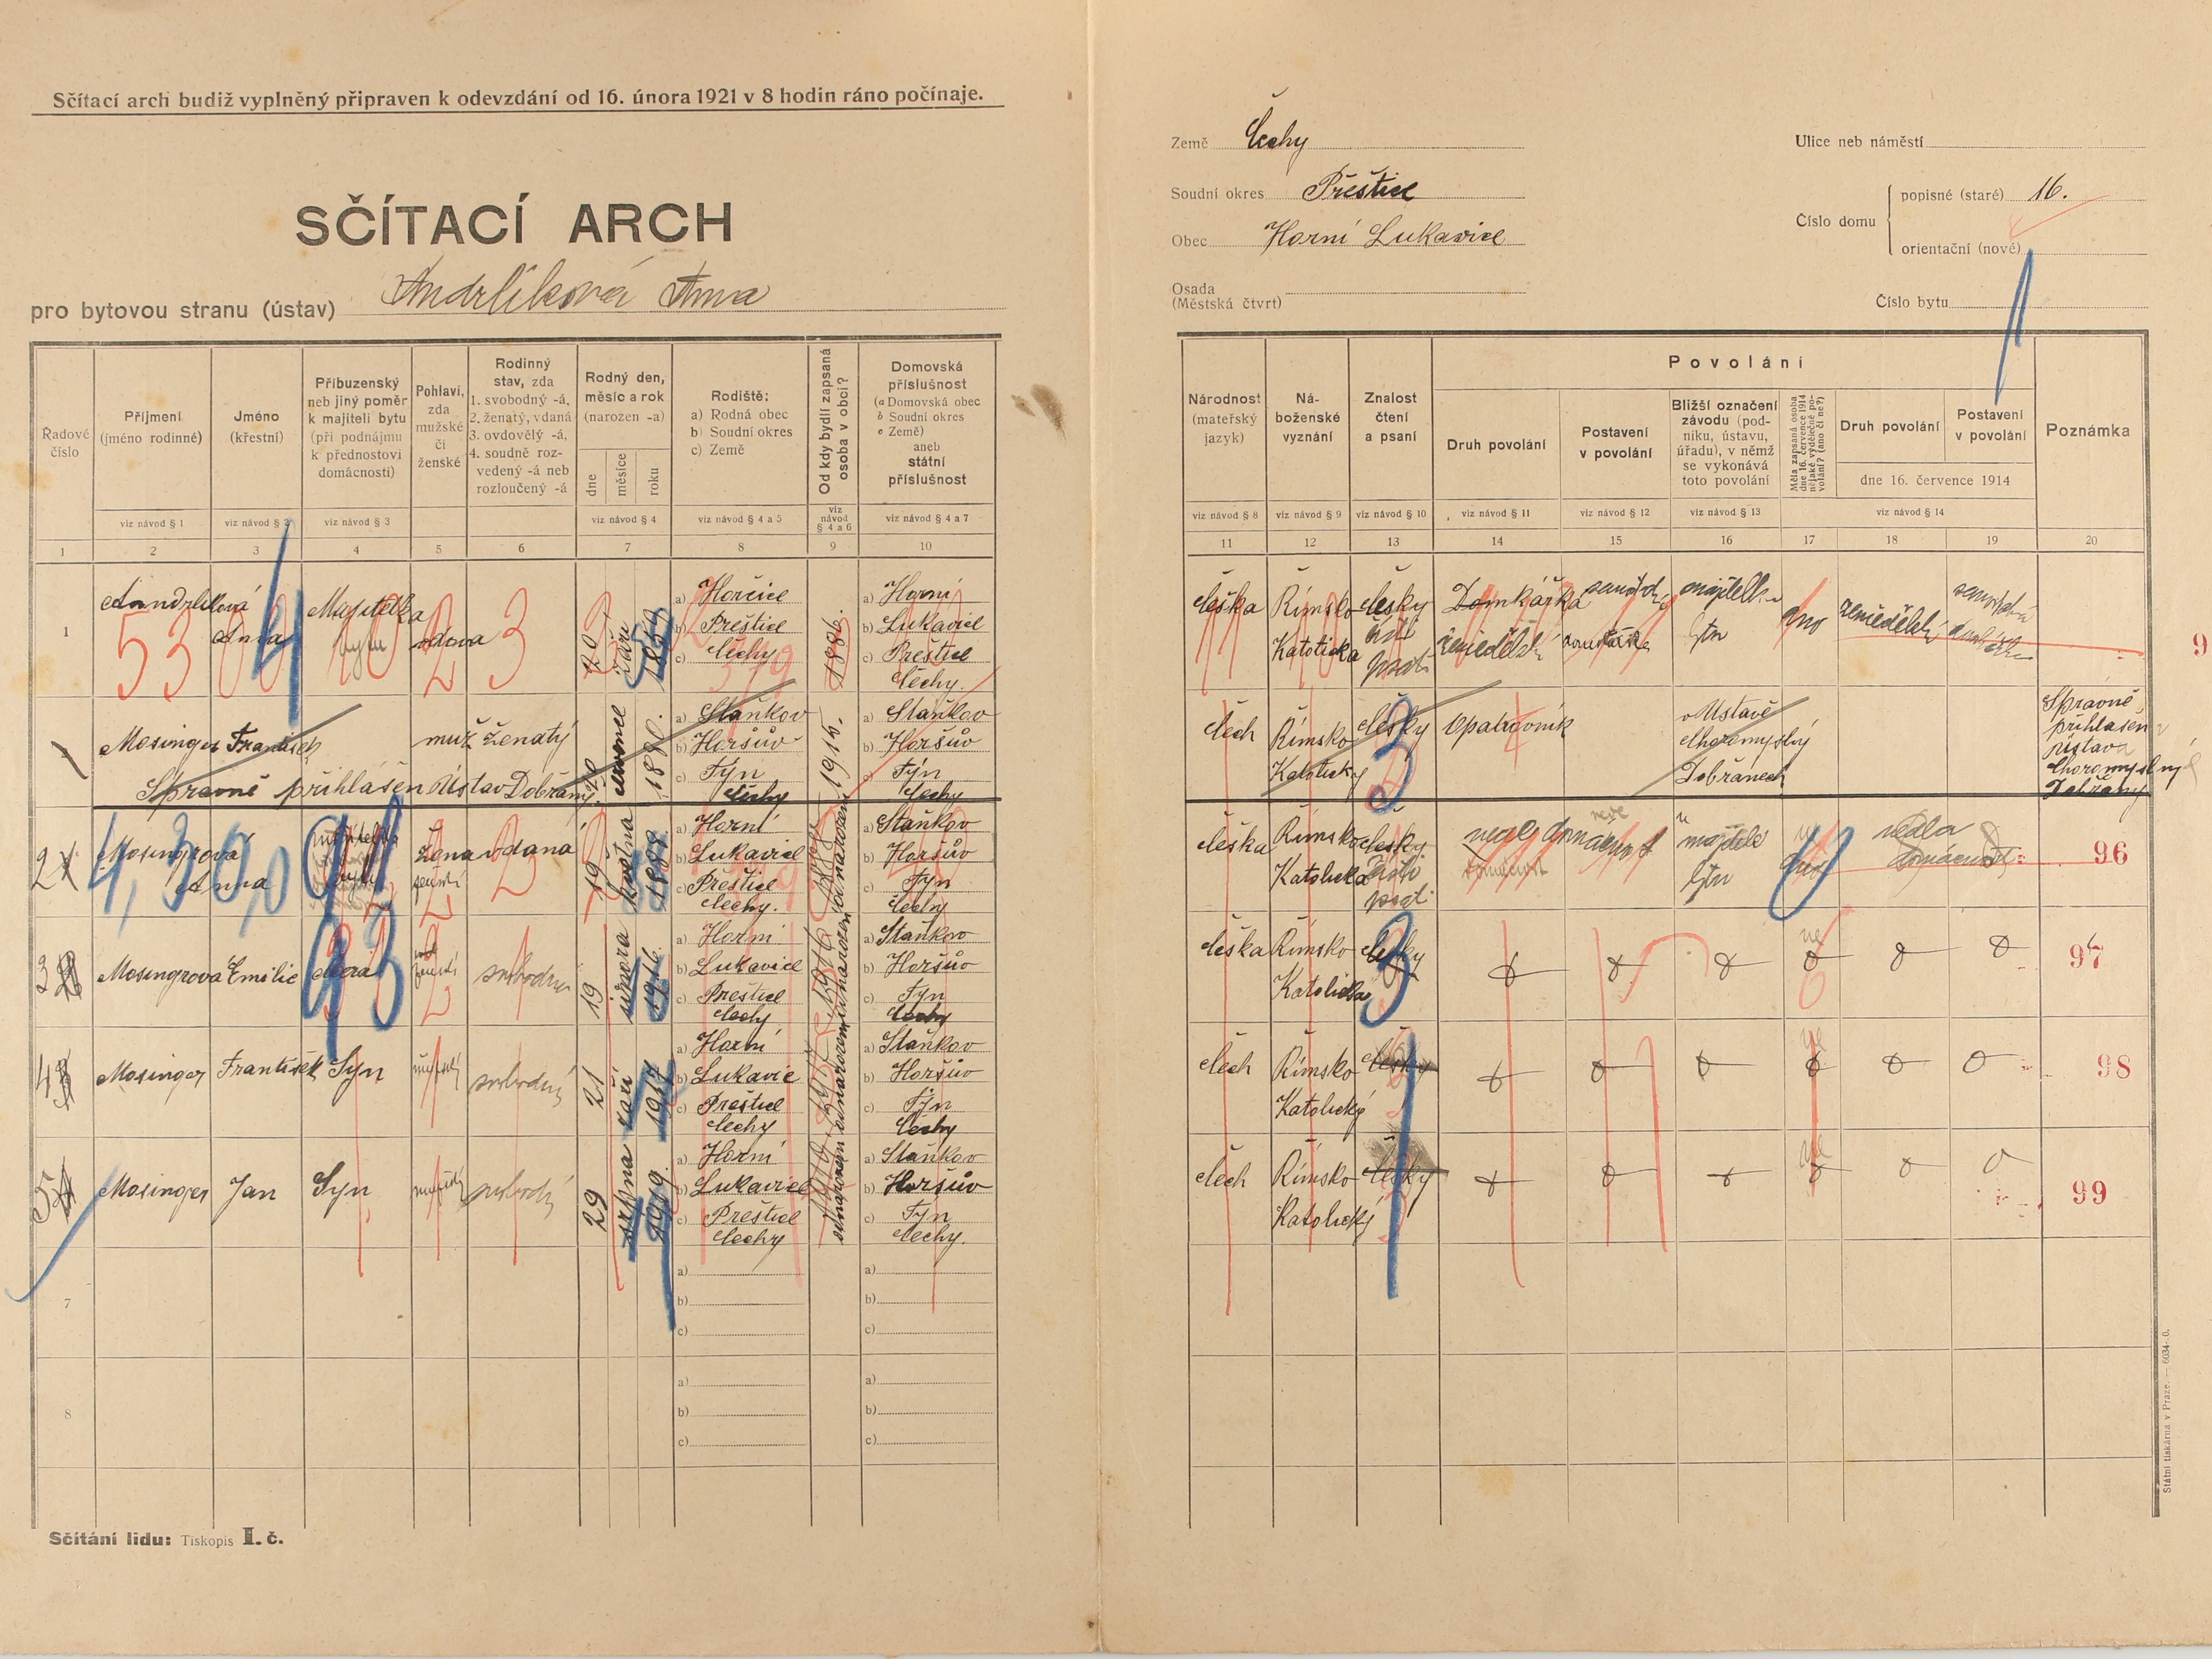 Sčítací arch budiž vyplněný připraven k odevzdání od 16. února 1921 v 8 hodin ráno počínaje.
SČÍTACÍ ARCH
pro bytovou stranu (ústav) Andrlíková Anna
Země Čechy
Soudní okres Přeštice
Obec Horní Lukavice
Osada
(Městská čtvrt)
Ulice neb náměstí
Číslo domu
popisné (staré) 16.
orientační (nové)
Číslo bytu
Řadové číslo
Příjmení (jméno rodinné)
Jméno (křestní)
Příbuzenský neb jiný poměr k majiteli bytu (při podnájmu k přednostovi domácnosti)
Pohlaví, zda mužské či ženské
Rodinný stav, zda 1. svobodný -á, 2. ženatý, vdaná 3. ovdovělý -á, 4. soudně rozvedený -á neb rozloučený -á
Rodný den, měsíc a rok (narozen -a)
dne měsíce roku
Rodiště:
a) Rodná obec
b) Soudní okres
c) Země
Od kdy bydlí zapsaná osoba v obci?
Domovská příslušnost
(a Domovská obec
b Soudní okres
c Země)
aneb státní příslušnost
viz návod § 1 viz návod § 2 viz návod § 3 viz návod § 4 viz návod § 4 a 5 viz návod § 4 a 6 viz návod § 4 a 7
1 2 3 4 5 6 7 8 9 10
Národnost (mateřský jazyk)
Náboženské vyznání
Znalost čtení a psaní
Povolání
Druh povolání
Postavení v povolání
Bližší označení závodu (podniku, ústavu, úřadu), v němž se vykonává toto povolání
Měla zapsaná osoba dne 16. července 1914 nějaké výdělečné povolání? (ano či ne?)
Druh povolání
Postavení v povolání
dne 16. července 1914
Poznámka
viz návod § 8 viz návod § 9 viz návod § 10 viz návod § 11 viz návod § 12 viz návod § 13 viz návod § 14
11 12 13 14 15 16 17 18 19 20
1 Andrlíková Anna Majitelka bytu vdova 3 20 září
a) Horčice
b) Přeštice
c) Čechy
1886.
a) Horní
b) Lukavice
c) Přeštice
Čechy.
Češka Římsko Katolická česky čísti psáti Domkářka zemědělství ano zemědělství
Mosinger František muž ženatý července 1880.
a) Staňkov
b) Horšův
c) Týn
Čechy
a) Staňkov
b) Horšův
c) Týn
Čechy
Správně přihlášen Ústav Dobřany
Čech Římsko Katolický česky Opatrovník v Ústavě Choromyslný Dobřanech
Správně přihlášen Ústava Choromyslných Dobřany
2 Mosingrova Anna žena vdaná 19 května 1888
a) Horní
b) Lukavice
c) Přeštice
Čechy.
a) Staňkov
b) Horšův
c) Týn
Čechy
Češka Římsko Katolická česky 96
3 Mosingrova Emilie dcera svobodná 19 února 1916
a) Horní
b) Lukavice
c) Přeštice
Čechy
a) Staňkov
b) Horšův
c) Týn
Čechy
Češka Římsko Katolická česky ne 97
4 Mosinger František Syn mužský svobodný 21 září 1917
a) Horní
b) Lukavice
c) Přeštice
Čechy
a) Staňkov
b) Horšův
c) Týn
Čechy
Čech Římsko Katolický česky ne 98
5 Mosinger Jan Syn mužský svobodný 29 srpna 1919.
a) Horní
b) Lukavice
c) Přeštice
Čechy
a) Staňkov
b) Horšův
c) Týn
Čechy.
Čech Římsko Katolický česky ne 99
7
a)
b)
c)
a)
b)
c)
8
a)
b)
c)
a)
b)
c)
Sčítání lidu: Tiskopis I. č.
Státní tiskárna v Praze. — 6034-0.